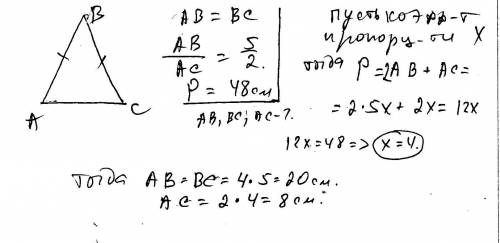 B
A
C
AB = BC
AB/AC = 5/2.
P = 48 см
AB, BC; AC - ?.
пусть коэф-т
пропорц-ти X
тогда P = 2AB + AC =
= 2·5x + 2x = 12x
12x = 48 => x = 4.
тогда AB = BC = 4·5 = 20 см.
AC = 2·4 = 8 см.